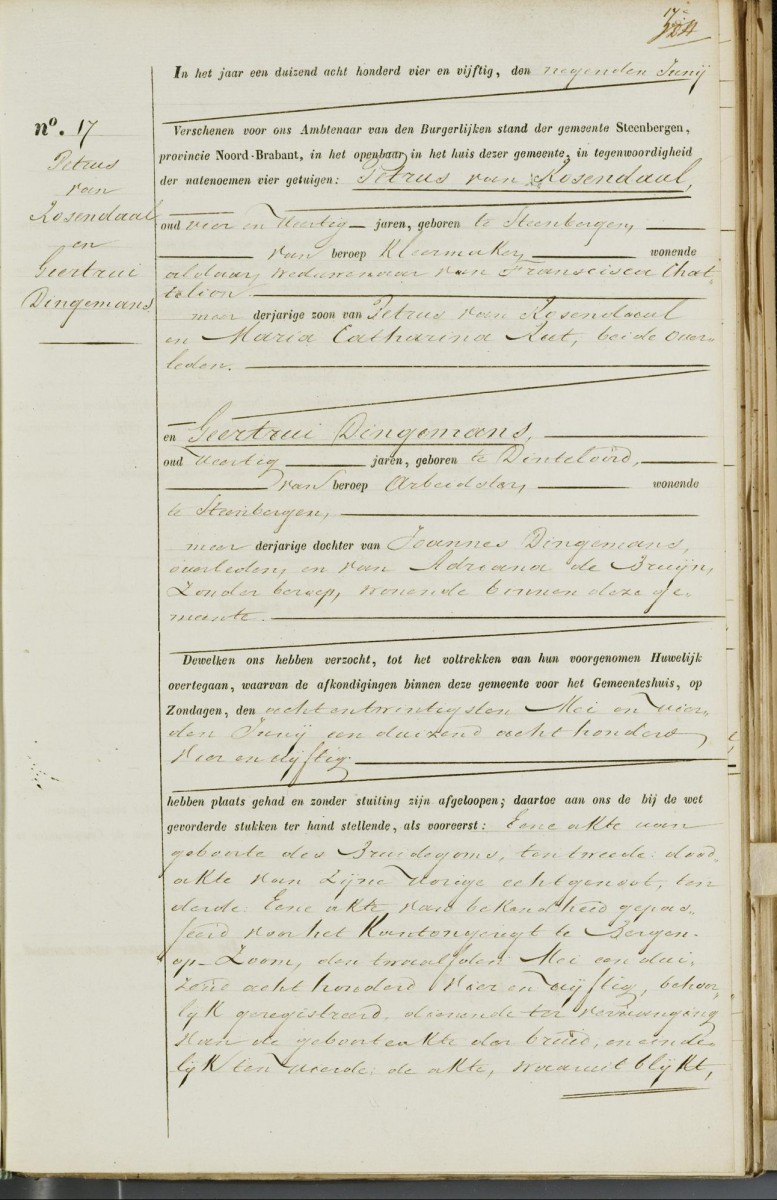 17e
In het jaar een duizend acht honderd vier en vijftig, den negenden Junij
no. 17
Petrus
van
Rosendaal
en
Geertrui
Dingemans
Verschenen voor ons Ambtenaar van den Burgerlijken stand der gemeente Steenbergen,
provincie Noord-Brabant, in het openbaar in het huis dezer gemeente, in tegenwoordigheid
der natenoemen vier getuigen: Petrus van Rosendaal,
oud vier en veertig jaren, geboren te Steenbergen,
van beroep Kleermaker, wonende
aldaar, weduwenaar van Francisca Chat-
telion.
meer derjarige zoon van Petrus van Rosendaal
en Maria Catharina Rut, beide over-
leden.
en Geertrui Dingemans,
oud veertig jaren, geboren te Dinteloord,
van beroep Arbeidster, wonende
te Steenbergen,
meer derjarige dochter van Joannes Dingemans,
overleden, en van Adriana de Bruijn,
zonder beroep, wonende binnen deze ge-
meente.
Dewelken ons hebben verzocht, tot het voltrekken van hun voorgenomen Huwelijk
overtegaan, waarvan de afkondigingen binnen deze gemeente voor het Gemeenteshuis, op
Zondagen, den acht en twintigsten Mei en vier-
den Junij een duizend acht honderd
vier en vijftig.
hebben plaats gehad en zonder stuiting zijn afgeloopen; daartoe aan ons de bij de wet
gevorderde stukken ter hand stellende, als vooreerst: Eene akte van
geboorte des Bruidegoms, ten tweede: dood-
akte van zijne vorige echtgenoot, ten
derde: Eene akte, van bekendheid gepas-
seerd voor het Kantongeregt te Bergen-
op-Zoom, den twaalfden Mei een dui-
zend acht honderd vier en vijftig, behoor-
lijk geregistreerd, dienende ter vervanging
van de geboorteakte der bruid, en einde-
lijk ten vierde: de akte, waaruit blijkt,